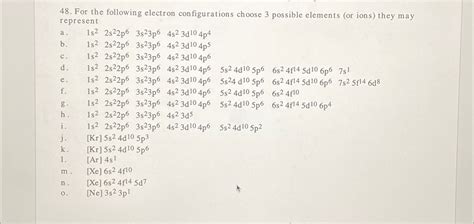 48. For the following electron configurations choose 3 possible elements (or ions) they may
represent
a. 1s2 2s22p6 3s23p6 4s2 3d10 4p4
b. 1s2 2s22p6 3s23p6 4s2 3d10 4p5
c. 1s2 2s22p6 3s23p6 4s2 3d10 4p6
d. 1s2 2s22p6 3s23p6 4s2 3d10 4p6 5s2 4d10 5p6 6s2 4f14 5d10 6p6 7s1
e. 1s2 2s22p6 3s23p6 4s2 3d10 4p6 5s24 d10 5p6 6s2 4f14 5d10 6p6 7s2 5f14 6d8
f. 1s2 2s22p6 3s23p6 4s2 3d10 4p6 5s2 4d10 5p6 6s2 4f10
g. 1s2 2s22p6 3s23p6 4s2 3d10 4p6 5s2 4d10 5p6 6s2 4f14 5d10 6p4
h. 1s2 2s22p6 3s23p6 4s2 3d5
i. 1s2 2s22p6 3s23p6 4s2 3d10 4p6 5s2 4d10 5p2
j. [Kr] 5s2 4d10 5p3
k. [Kr] 5s2 4d10 5p6
l. [Ar] 4s1
m. [Xe] 6s2 4f10
n. [Xe] 6s2 4f14 5d7
o. [Ne] 3s2 3p1